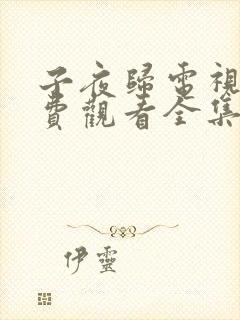 子夜歸電視
費觀看全集
伊靈